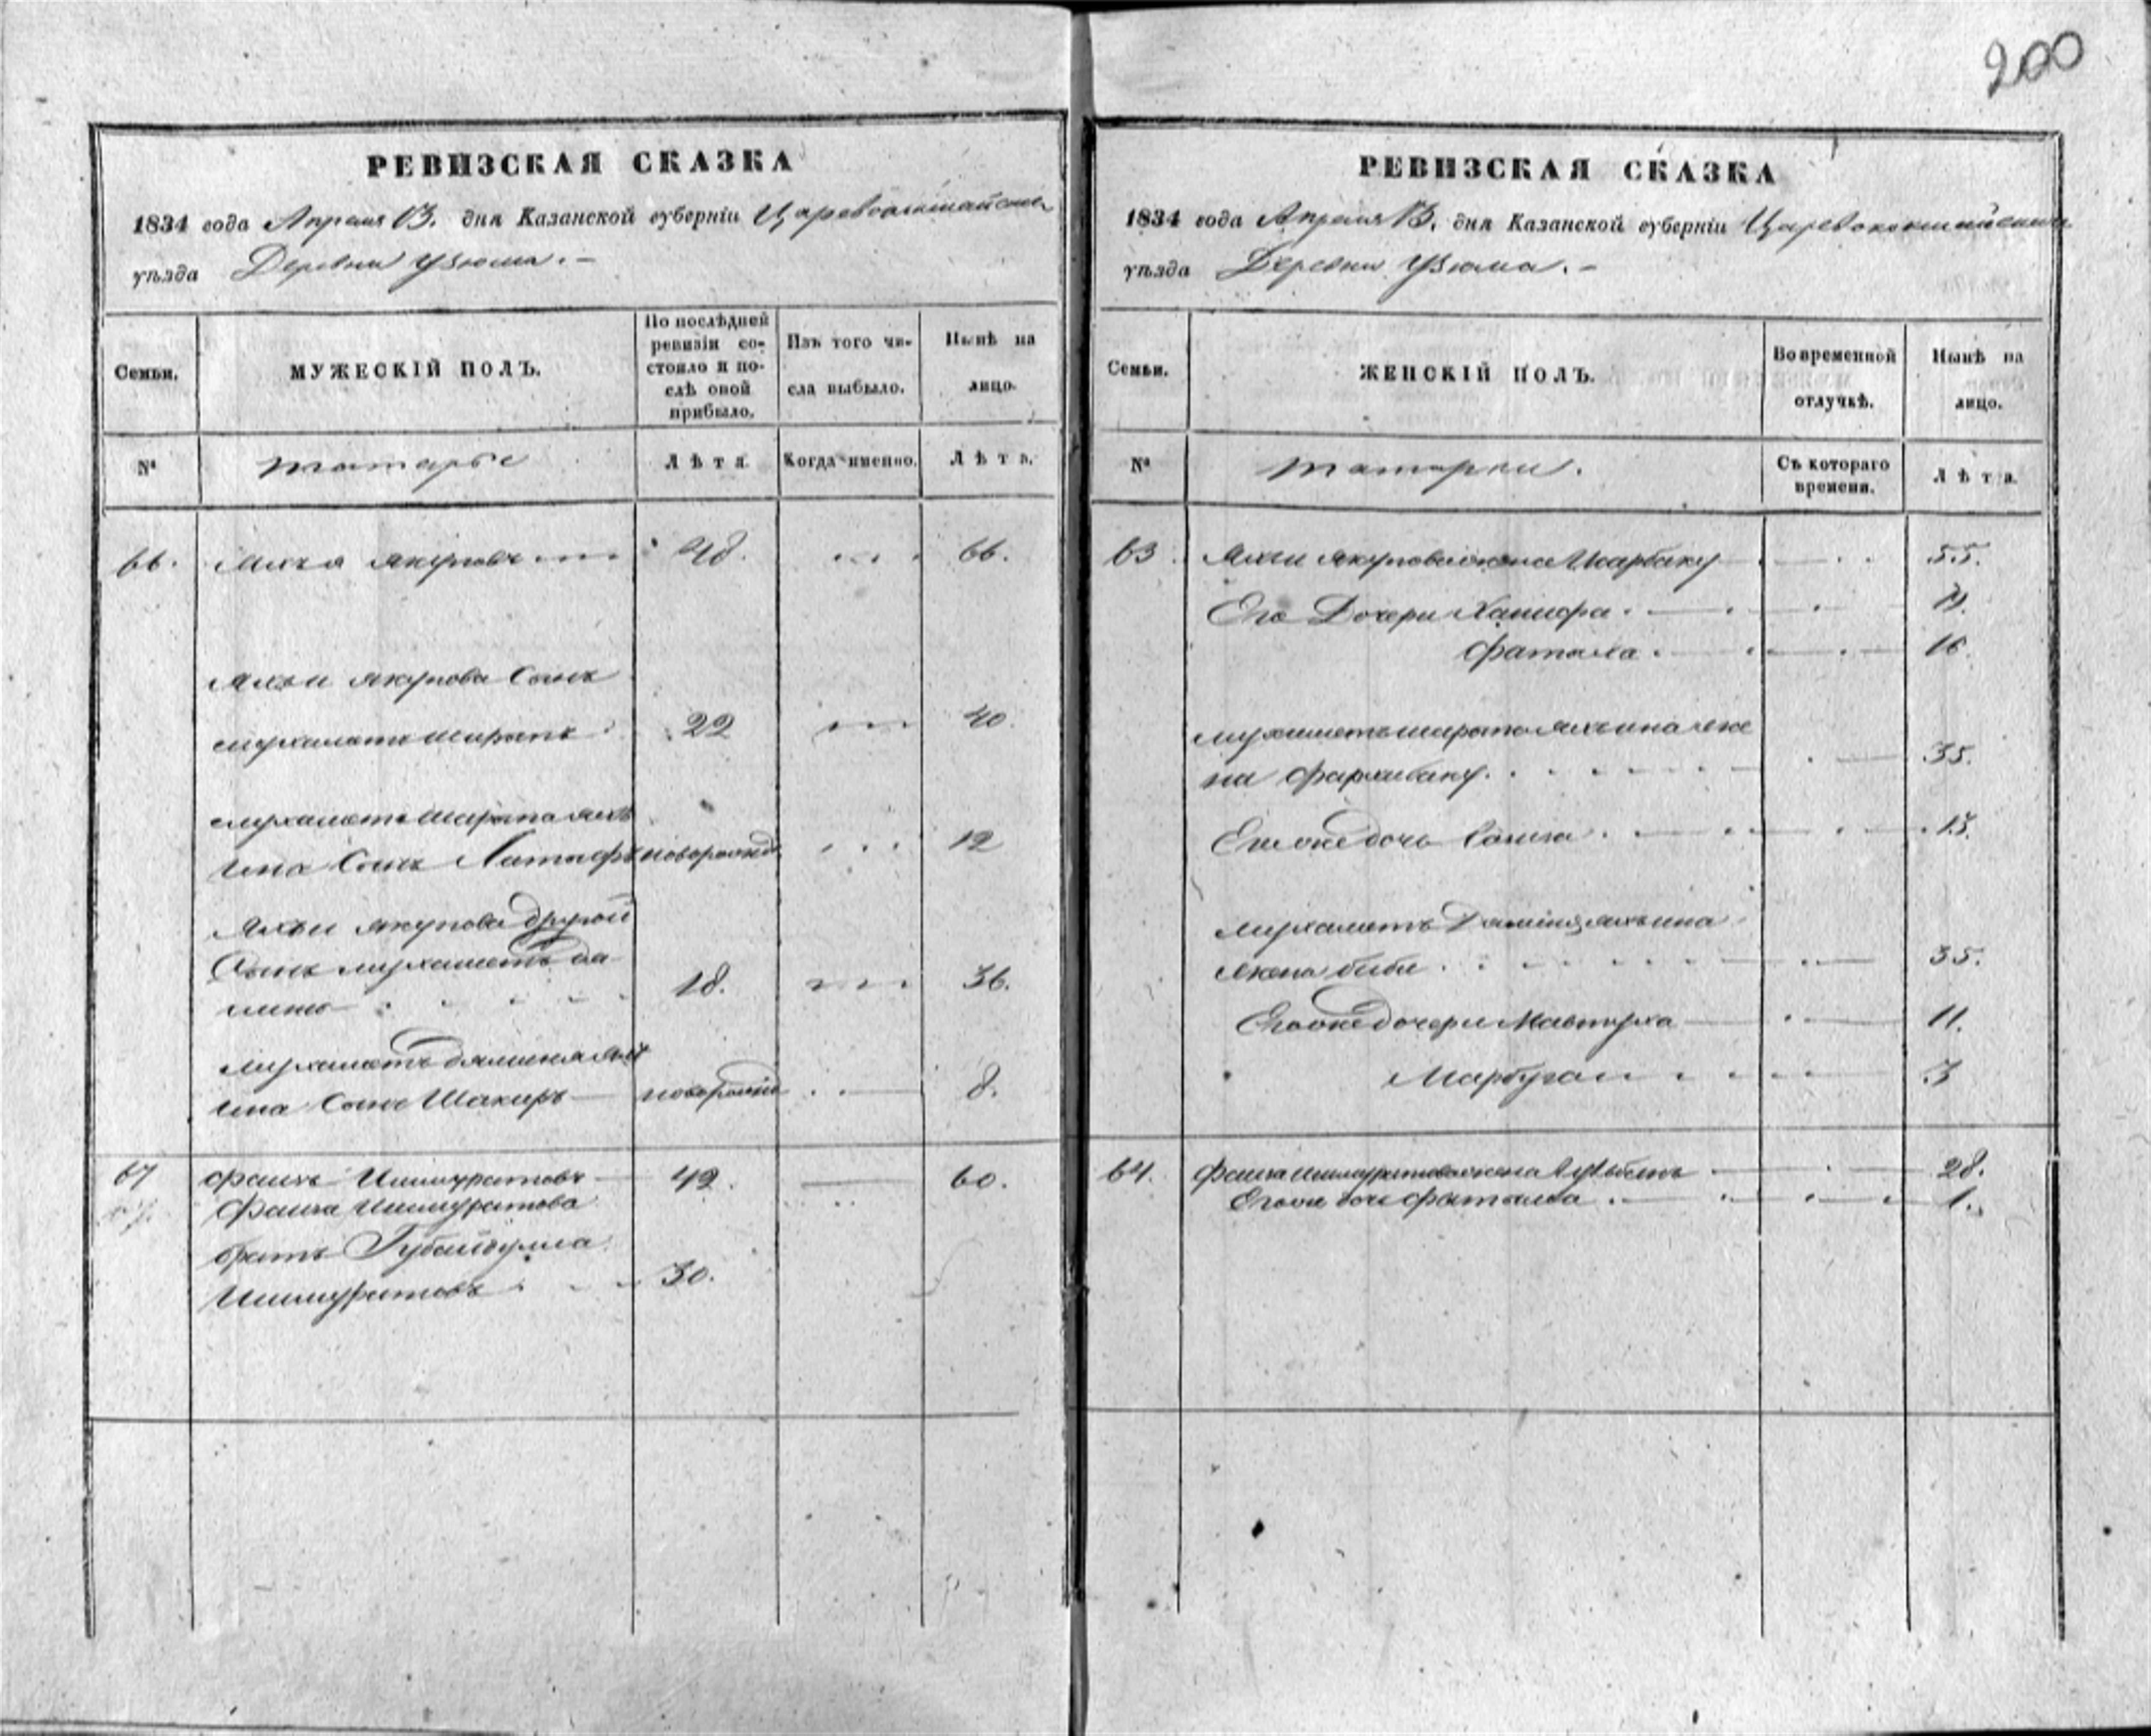 200
РЕВИЗСКАЯ СКАЗКА
1834 года Апреля 13. дня Казанской губерніи Царевококшайскаго
уѣзда Деревни Узюма.
Семьи. МУЖЕСКІЙ ПОЛЪ. По послѣдней ревизіи состояло и послѣ оной прибыло. Изъ того числа выбыло. Нынѣ на лицо.
№ татарье Лѣта. Когда именно. Лѣта.
66. Яхъя Якуповъ 48. 66.
Яхъи Якупова Сынъ
мухаметъ шарыпъ 22 40.
мухаметъ шарыпа яхъ
ина Сынъ Латыфъ новорожд 12
Яхъи Якупова другой
Сынъ мухаметъ да
минъ 18. 36.
мухаметъ даминя яхъ
ина Сынъ Шакиръ новорожд 8.
67 Фаизъ Ишмуратовъ 42. 60.
Фаиза Ишмуратова
братъ Губайдулла
Ишмуратовъ 30.
РЕВИЗСКАЯ СКАЗКА
1834 года Апреля 13. дня Казанской губерніи Царевококшайскаго
уѣзда Деревни Узюма.
Семьи. ЖЕНСКІЙ ПОЛЪ. Во временной отлучкѣ. Нынѣ на лицо.
№ татарки. Съ котораго времени. Лѣта.
63 Яхъи Якупова жена 55.
Его Дочери Ханифа
16.
мухаметъ шарыпа яхъина же
на 35.
Его же дочь 15.
мухаметъ даминя яхъина
жена биби 35.
Его же дочери 11.
3
64. Фаиза Ишмуратова жена 28.
Его же дочь 1.